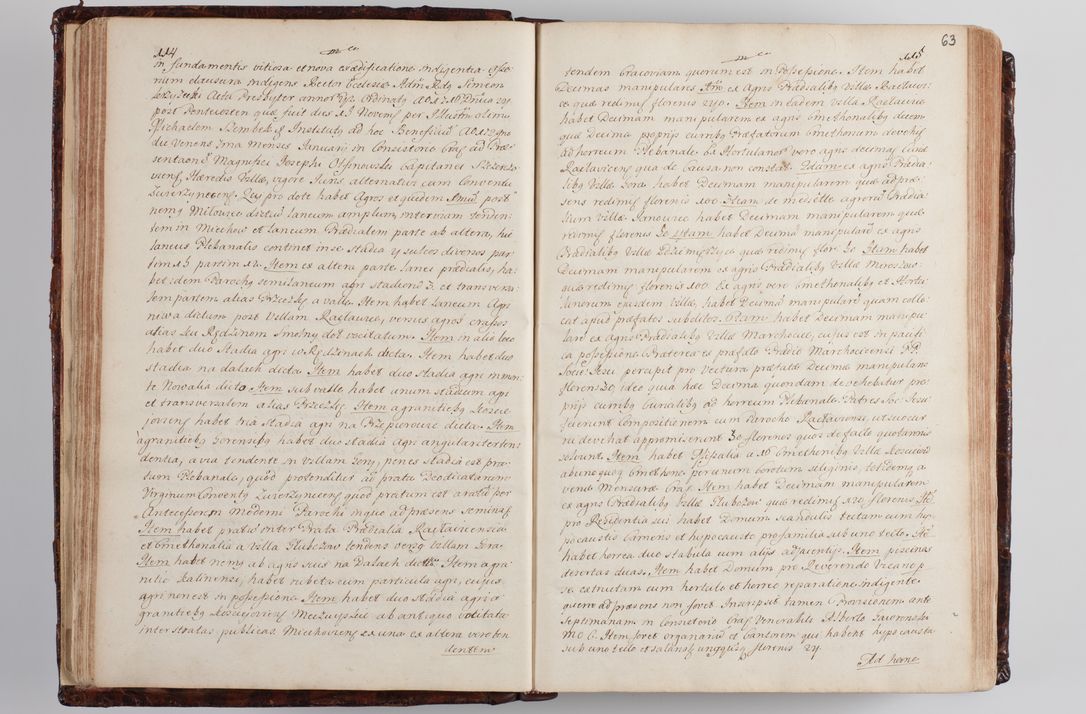 114
in fundamentis vitiosa et nova exædificatione indigentia
num clausura indigens Rector Ecclesiæ Adm Rdg Simeon
Presbyter annor 52
post Pentecosten quæ fuit dies 13 Novemb per Illustrm olim
Michaelem Szembek Institutg ad hoc Beneficiū
die Veneris 2ma Mensis Januarij in Consistorio Crac ad Præ
sentaonē Magnifici Josephi Ossinowski Capitanei
Hæredis Villæ, vigore Juris alternativi cum Conventu
Zwierzynecens Qui pro dote habet Agros et quidem post
nemg Milowice dictū laneum amplum, inter viam tenden
tem in Miechow et Laneum Prædialem parte ab altera, hic
laneus Plebanalis continet in se Stadia et sulcos diversos par
tim 13 partim 12. Item ex altera parte lanei prædialis, ha
bet idem Parochg semilaneum agri stadiorū 3. et transversa
lem partem alias Przeczki a valle. Item habet laneum Agri
niwa dictum post Villam Racławice, versus agros crassos
alias ku Rędzinom Smolny doł vocitatum. Item in alio loco
habet duo Stadia agri w Rędzinach dicta. Item habet duo
stadia na dalach dicta. Item habet duo stadia agri in mon
te Nowalia dicto. Item sub valle habet unum stadium agri
et transversalem alias Przeczkę. Item a granitiebg Koscie
jowiens habet tria stadia agri na Przepierowie dicta. Item
a granitiebg Gorensibg habet duo stadia agri angulariter ten
dentia, a via tendente in Villam Gory, penes stadia est pra
tum Plebanale, quod protenditur ad prata Deodicatarum
Virginum Conventg Zwierzynecens quod pratum est aratū per
Antecessorem moderni Parochi inque ad præsens seminas
Item habet pratū inter Prata Prædialia Racławicensia
et Cmethonalia a Villa Głubczow tendens versg Villam Gora.
Item habet nemg ab agris suis na Dalach dictis. Item a gra
nitie Kalinensi, habet rubeta cum particula agri, cujus
agri non est in possessione Item habet duo stadia agri a
granitiebg Kosciejoviens Maczuszkie ab antiquo vocitata
inter stratas publicas Miechoviens ex una ex altera vero ten
dentem

63
115
tendem Cracoviam quorum est in Possessione. Item habet
Decimas manipulares Imo ex Agris Prædialibg Villæ Racławi
ce quæ redimis florenis 240. Item in eadem Villa Racławice
habet Decimam manipularem ex agris Cmethonalibg decem
quæ Decima proprijs curribg Præfatorum Cmethonum devehis
ad horreum Plebanale. Ex Hortulanor vero agris decimas
Racławicens qua de Causa non constat. 2dum ex agris Prædia
libg Villæ Gora habet Decimam manipularem quæ ad præ
sens redimis florenis 100. 3tiam de medietate agrorū Prædia
lium Villæ Janowice habet Decimam manipularem quæ
redimis florenis 30. 4tam habet Decimā manipularē ex agris
Prædialibg Villæ quæ redimis flor. 30. Item habet
Decimam manipularem ex agris Prædialibg Villæ Mieroszow
quæ redimis florenis 100. Ex agris vero Cmethonalibg et Hortu
lanorum ejusdem Villæ, habet Decimā manipularē quam collo
cat apud præfatos subditos. 6tam habet Decimam manipu
larem ex agris Prædialibg Villæ Marchocice, cujus est in pacifi
ca possessione. Præterea ex præfato Prædio Marchocicensi P.P.
Socis Jesu percipit pro vectura præfatæ Decimæ manipularis
florens 30, ideo quia hæc Decima quondam devehebatur pro
prijs curribg Curialibg ad horreum Plebanale. Patres Soc. Jesu
fecerunt Compositionem cum Parocho Racławicensi ut suo cur
ru devehat appromiserunt 30 florenos quos de facto quotannis
solvunt. Item habet Missalia a 16 Cmethonibg Villæ Kosciejow
ab unoquoq Cmethone per unum Corotum siliginis, totidemq a
venæ Mensuræ Crac. Item habet Decimam manipularem
ex agris Prædialibg Villæ Głubczow quæ redimis 120 florenis. Ite
pro Residentia sui habet Domum scandulis tectam cum hy
pocaustis Camens et hypocausto pro familia sub uno tecto. Ite
habet horrea duo stabula cum alijs adjacentijs. Item piscinas
desertas duas. Item habet Domum pro Reverendo Vicario p
se extructam cum hortulo et horreo reparatione indigente
quem ad præsens non fovet Inscripsit tamen Provisionem ante
septimanam in Consistorio Crac. Venerabili Alberto Jaronski
Item fovet organariū et Cantorem qui habent hypocausta
sub uno tecto et salaris florenis 24.
Ad horre